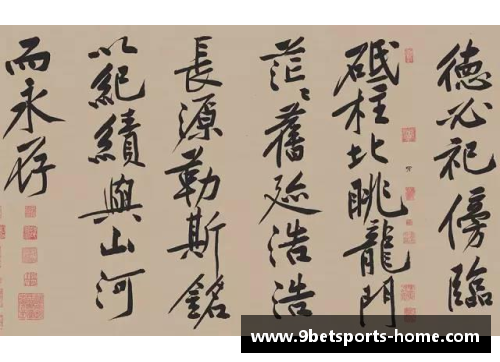 德必祀傍臨
砥柱北眺龍門
茫〻舊迹浩浩
長源勒斯銘
以紀績與山河
而永存
www.9betsports-home.com